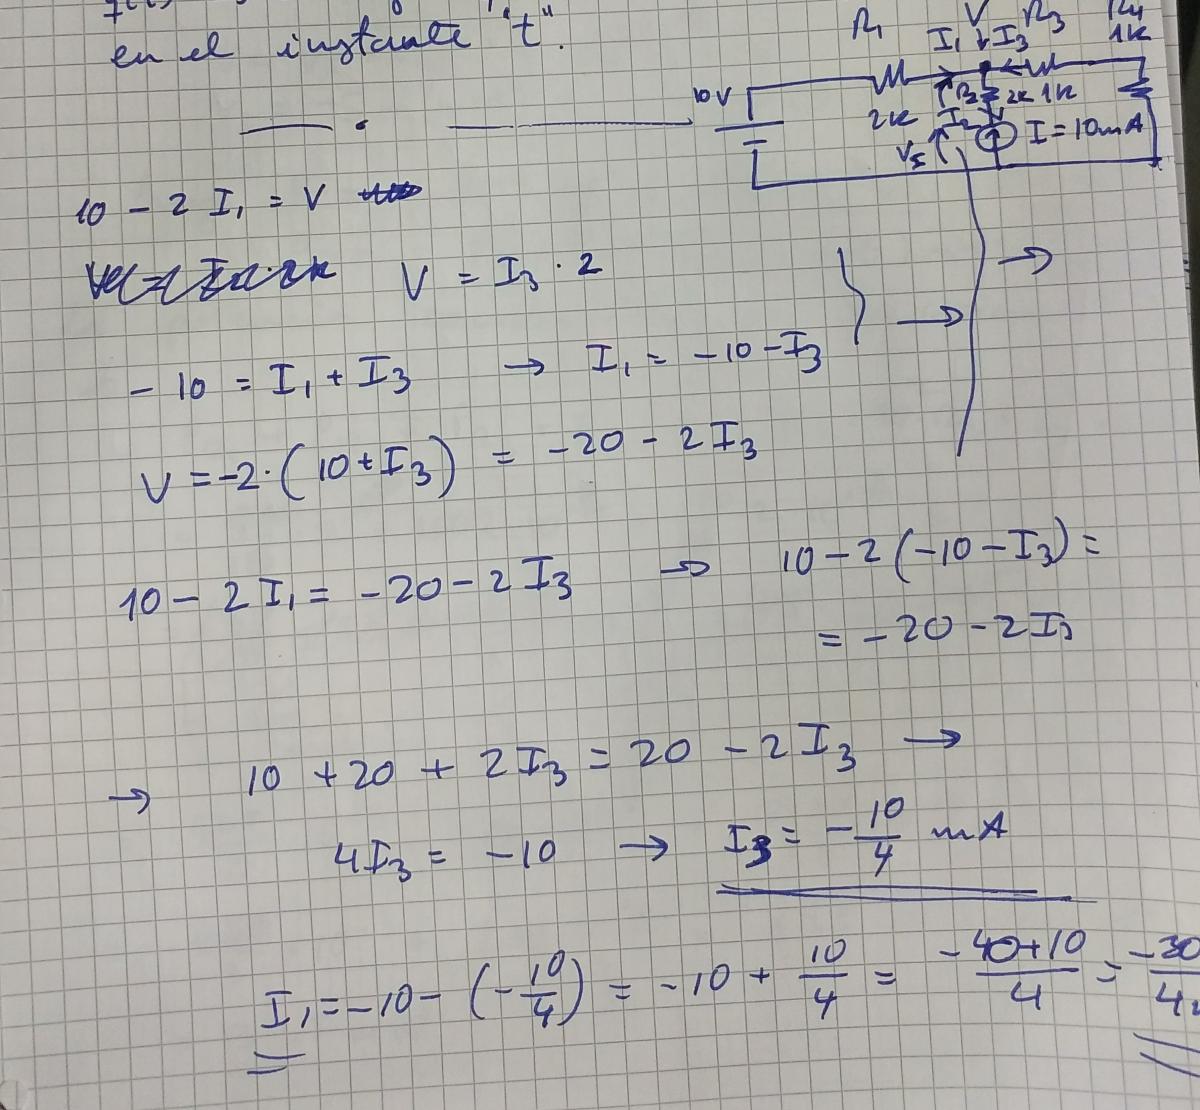 en el instante "t".
R₁ V R₃ R₄
I₁ I₃ 1K
10V R₂ 2K 1K
2K I₂
V₅ I = 10mA
10 - 2 I₁ = V
V = I₃ · 2
- 10 = I₁ + I₃ → I₁ = -10 - I₃
V = -2 · (10 + I₃) = -20 - 2 I₃
10 - 2 I₁ = -20 - 2 I₃ → 10 - 2 (-10 - I₃) =
= -20 - 2 I₃
→ 10 + 20 + 2 I₃ = 20 - 2 I₃ →
4 I₃ = -10 → I₃ = - 10/4 mA
I₁ = -10 - (- 10/4) = -10 + 10/4 = (-40+10)/4 = -30/4